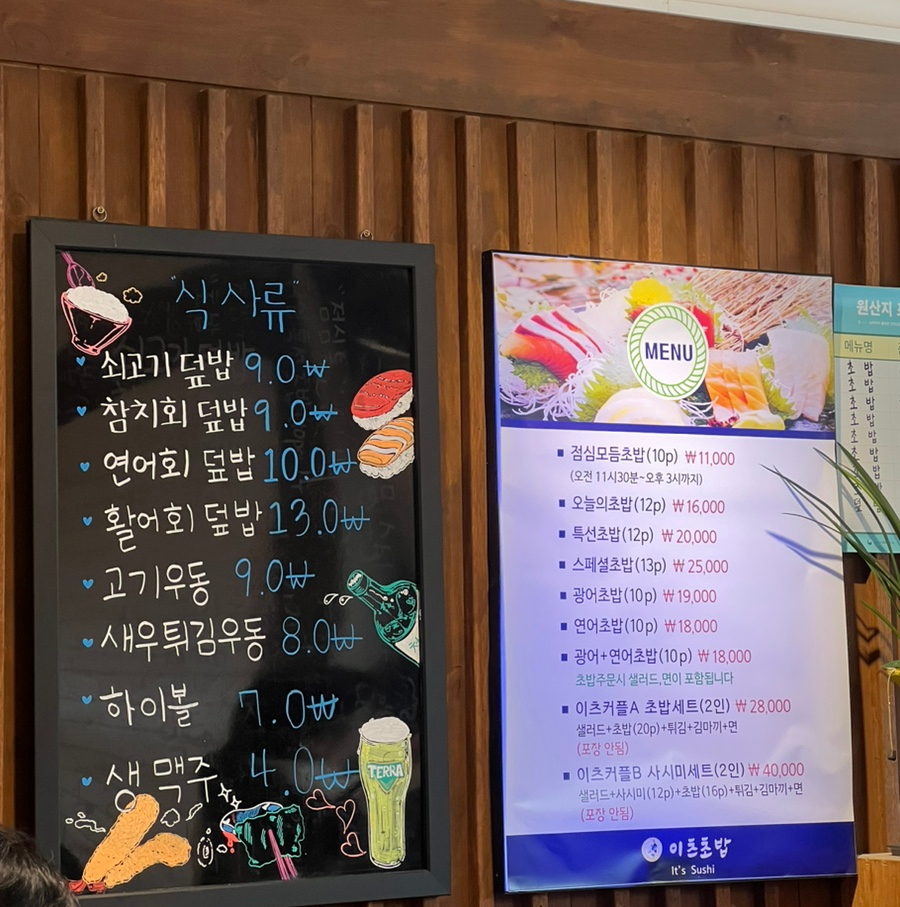 "식사류"
쇠고기 덮밥 9.0₩
참치회 덮밥 9.0₩
연어회 덮밥 10.0₩
활어회 덮밥 13.0₩
고기우동 9.0₩
새우튀김우동 8.0₩
하이볼 7.0₩
생맥주 4.0₩
TERRA
MENU
점심모듬초밥(10p) ₩11,000
(오전 11시30분~오후 3시까지)
오늘의초밥(12p) ₩16,000
특선초밥(12p) ₩20,000
스페셜초밥(13p) ₩25,000
광어초밥(10p) ₩19,000
연어초밥(10p) ₩18,000
광어+연어초밥(10p) ₩18,000
초밥주문시 샐러드,면이 포함됩니다
이츠커플A 초밥세트(2인) ₩28,000
샐러드+초밥(20p)+튀김+김마끼+면
(포장 안됨)
이츠커플B 사시미세트(2인) ₩40,000
샐러드+사시미(12p)+초밥(16p)+튀김+김마끼+면
(포장 안됨)
이츠초밥
It's Sushi
원산지
메뉴명
초 밥
초 밥
초 밥
초 밥
초 밥